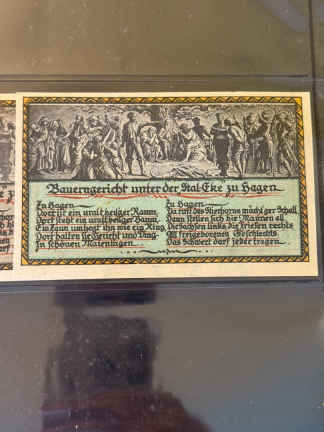 Bauerngericht unter der Stal-Eke zu Hagen
Zu Hagen
Dort ist ein uralt heilger Raum,
Dort steht ein uralt heilger Baum,
Ein Zaun umhegt ihn wie ein Ring
Dort halten sie Gericht und Ding
In schönen Maientagen.
Zu Hagen
Da ruft des Stierhorns mächtger Schall
Dann stellen sich die Mannen all
Die Sachsen links die Friesen rechts
freigeborenen Geschlechts
Das Schwert darf jeder tragen